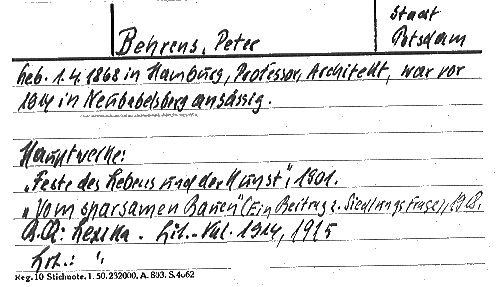 Stadt
Potsdam
Behrens, Peter
Geb. 1.4.1868 in Hamburg, Professor, Architekt, war vor
1914 in Neubabelsberg ansässig.
Hauptwerke:
„Feste des Lebens und der Kunst", 1901.
„Vom sparsamen Bauen" (Ein Beitrag z. Siedlungsfrage), 1918.
Lit.-Kal. 1914, 1915
Reg. 10 Stichnote. I. 50. 232000. A. 803. S. 4062